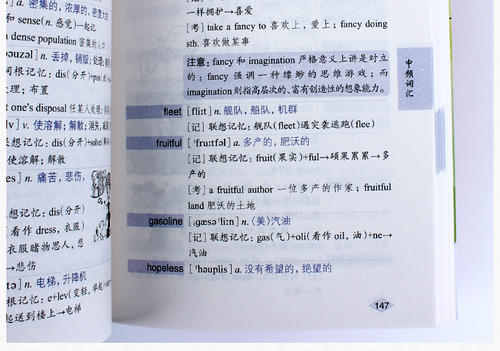 a. 密集的, 浓厚的, 密度大的
和 sense(n. 感觉)一起记
dense population 密集的人口
丢掉, 销毁; 处理;
词根记忆: dis(分开)+pos(
理; 布置
one's disposal 任某人处理;
v] v. 使溶解; 解散; 消失,
联想记忆: dis(分开)+solve(
使溶解; 解散
es] n. 痛苦, 悲伤,
想记忆: dis(分开)
看作 dress, 衣服)
衣服睹物思人, 悲
→悲伤
tə] n. 电梯, 升降机
根记忆: e+lev(变轻, 举起)+
起送到楼上→电梯
一样拥护→喜爱
[考] take a fancy to 喜欢上, 爱上; fancy doing
sth. 喜欢做某事
注意: fancy 和 imagination 严格意义上讲是对立
的: fancy 强调一种缥缈的思维游戏; 而
imagination 则指高层次的、富有创造性的想象能力。
fleet [fliːt] n. 舰队, 船队, 机群
[记] 联想记忆: 舰队(fleet)遇突袭逃跑(flee)
fruitful ['fruːtfəl] a. 多产的, 肥沃的
[记] 联想记忆: fruit(果实)+ful→硕果累累→多
产的
[考] a fruitful author 一位多产的作家; fruitful
land 肥沃的土地
gasoline [ˌgæsə'liːn] n. (美)汽油
[记] 联想记忆: gas(气)+oli(看作 oil, 油)+ne→
汽油
hopeless ['həuplis] a. 没有希望的, 绝望的
中频词汇
147